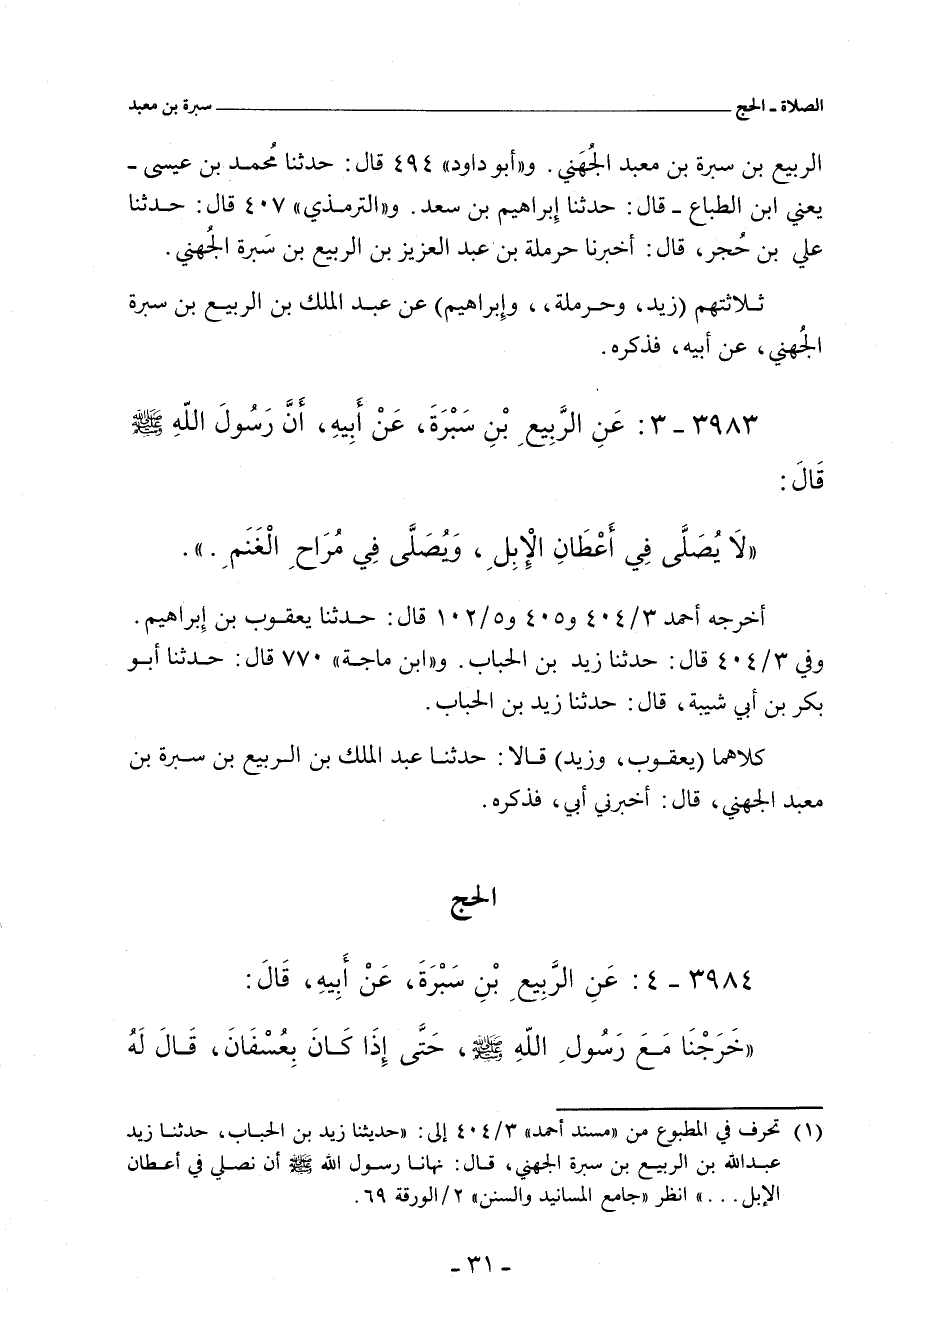 الصلاة ـ الحج ــــــــــــــــــــــــ سبرة بن معبد
الربيع بن سبرة بن معبد الجُهَني. و«أبو داود» ٤٩٤ قال: حدثنا مُحمد بن عيسى ـ
يعني ابن الطباع ـ قال: حدثنا إبراهيم بن سعد. و«الترمذي» ٤٠٧ قال: حدثنا
علي بن حُجر، قال: أخبرنا حرملة بن عبد العزيز بن الربيع بن سَبرة الجُهني.
ثلاثتهم (زيد، وحرملة،، وإبراهيم) عن عبد الملك بن الربيع بن سبرة
الجُهني، عن أبيه، فذكره.
٣٩٨٣ ـ ٣: عَنِ الرَّبِيعِ بْنِ سَبْرَةَ، عَنْ أَبِيهِ، أَنَّ رَسُولَ اللّهِ ﷺ
قَالَ:
«لَا يُصَلَّى فِي أَعْطَانِ الْإِبِلِ، وَيُصَلَّى فِي مُرَاحِ الْغَنَمِ.».
أخرجه أحمد ٤٠٤/٣ و٤٠٥ و١٠٢/٥ قال: حدثنا يعقوب بن إبراهيم.
وفي ٤٠٤/٣ قال: حدثنا زيد بن الحباب. و«ابن ماجة» ٧٧٠ قال: حدثنا أبو
بكر بن أبي شيبة، قال: حدثنا زيد بن الحباب.
كلاهما (يعقوب، وزيد) قالا: حدثنا عبد الملك بن الربيع بن سبرة بن
معبد الجهني، قال: أخبرني أبي، فذكره.
الحج
٣٩٨٤ ـ ٤: عَنِ الرَّبِيعِ بْنِ سَبْرَةَ، عَنْ أَبِيهِ، قَالَ:
«خَرَجْنَا مَعَ رَسُولِ اللّهِ ﷺ، حَتَّى إِذَا كَانَ بِعُسْفَانَ، قَالَ لَهُ
(١) تحرف في المطبوع من «مسند أحمد» ٤٠٤/٣ إلى: «حديثنا زيد بن الحباب، حدثنا زيد
عبدالله بن الربيع بن سبرة الجهني، قال: نهانا رسول الله ﷺ أن نصلي في أعطان
الإبل...» انظر «جامع المسانيد والسنن» ٢/الورقة ٦٩.
ـ ٣١ ـ